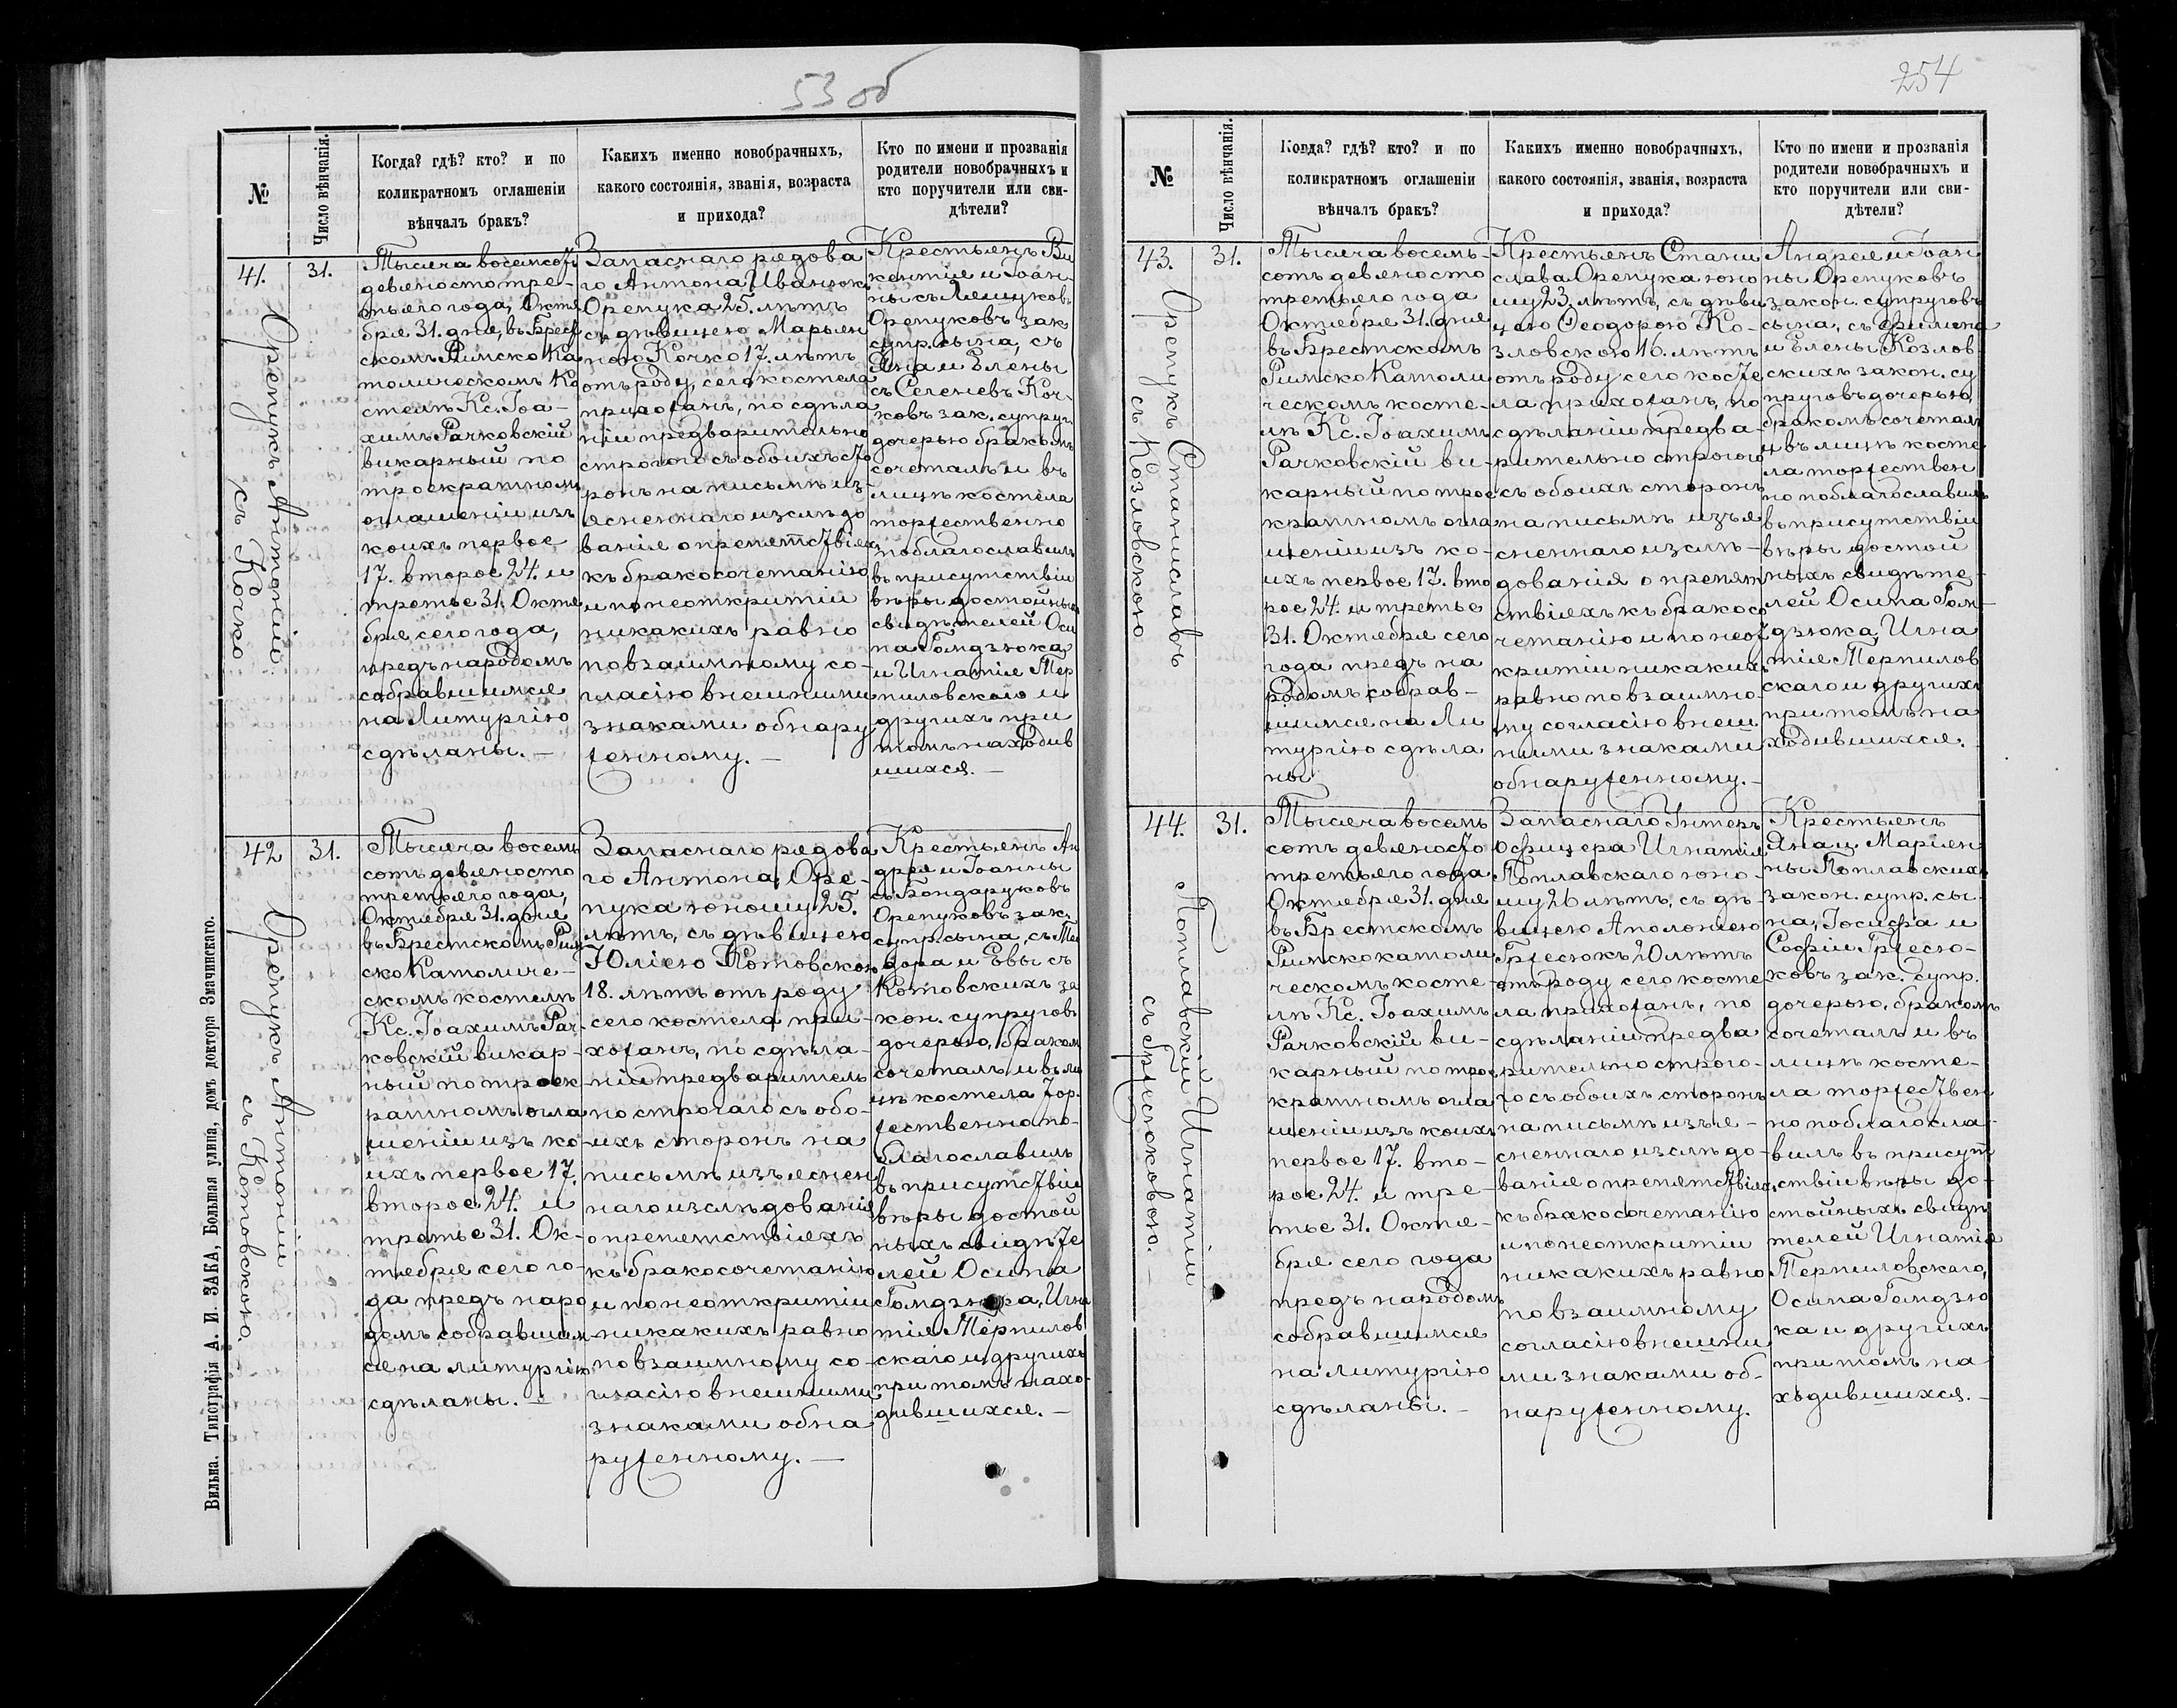 53 об
№
Число вѣнчанія.
Когда? гдѣ? кто? и по
коликратномъ оглашеніи
вѣнчалъ бракъ?
Какихъ именно новобрачныхъ,
какого состоянія, званія, возраста
и прихода?
Кто по имени и прозванія
родители новобрачныхъ и
кто поручители или сви-
дѣтели?
41.
Орепукъ Антоній
съ Кочко
31.
Тысяча восемсотъ
девяносто тре-
тьяго года, Октя
бря 31. дня, въ Брест
скомъ Римско Ка
толическомъ Ко
стелѣ Кс. Іоа-
химъ Рачковскій
викарный по
троекратномъ
оглашеніи изъ
коихъ первое
17. второе 24. и
третье 31. Октя
бря сего года,
предъ народомъ
собравшимся
на Литургію
сдѣланы. —
Запаснаго рядова
го Антона Иванюк
Орепука 25. лѣтъ
съ дѣвицею Марьян
ною Кочко 17. лѣтъ
отъ роду, сего костела
прихожанъ, по сдѣла
ніи предварительно
строгого съ обоихъ сто
ронъ на письмѣ изъ-
ясненнаго изслѣдо
ванія о препятствіях
къ бракосочетанію
и по неоткритіи
никакихъ равно
по взаимному со-
гласію внешними
знаками обнару
женному. —
Крестьянъ Ви
кентія и Іоан-
ны съ Лящуковъ
Орепуковъ зак
супр. сына, съ
Яна и Елены
съ Селеневъ Коч-
ковъ зак. супруг.
дочерью бракомъ
сочеталъ и въ
лицѣ костела
торжественно
поблагославилъ
въ присутствіи
вѣры достойныхъ
свидѣтелей Оси
па Гомдзюка
и Игнатія Тер
пиловскаго и
другихъ при
томъ находив
шихся. —
42
Орепукъ Антоній
съ Котовскою. —
31.
Тысяча восемь
сотъ девяносто
третьяго года,
Октября 31. дня
въ Брестскомъ Рим
ско Католиче-
скомъ костелѣ
Кс. Іоахимъ Рач-
ковскій викар-
ный по троек
ратномъ огла
шеніи изъ ко-
ихъ первое 17.
второе 24. и
третье 31. Ок-
тября сего го-
да предъ наро
домъ собравшим
ся на литургію
сдѣланы. —
Запаснаго рядова
го Антона Оре-
пука юношу 25.
лѣтъ, съ дѣвицею
Юліею Котовскою
18. лѣтъ отъ роду
сего костела при-
хожанъ, по сдѣла-
ніи предваритель
но строгаго съ обо-
ихъ сторонъ на
письмѣ изъяснен
наго изслѣдованія
о препятствіяхъ
къ бракосочетанію
и по неоткритіи
никакихъ равно
по взаимному со-
гласію внешними
знаками обна
руженному. —
Крестьянъ Ан
дрея и Іоанны
съ Бондаруковъ
Орепуковъ зак.
супр. сына, съ Тео
дора и Евы съ
Котовскихъ за
кон. супруговъ
дочерью, бракомъ
сочеталъ и въ ли
цѣ костела тор-
жественно по-
благославилъ
въ присутствіи
вѣры достой
ныхъ свидѣте
лей Осипа
Игна
тія Терпилов
скаго и другихъ
при томъ нахо-
дившихся. —
Вильна. Типографія А. И. ЗАКА, Большая улица, домъ доктора Змачинскаго.
254
№
Число вѣнчанія.
Когда? гдѣ? кто? и по
коликратномъ оглашеніи
вѣнчалъ бракъ?
Какихъ именно новобрачныхъ,
какого состоянія, званія, возраста
и прихода?
Кто по имени и прозванія
родители новобрачныхъ и
кто поручители или сви-
дѣтели?
43.
Орепукъ Станиславъ
съ Козловскою
31.
Тысяча восемь-
сотъ девяносто
третьяго года
Октября 31. дня
въ Брестскомъ
Римско Католи
ческомъ косте-
лѣ Кс. Іоахимъ
Рачковскій ви-
карный по трое
кратномъ огла
шеніи изъ ко-
ихъ первое 17. вто
рое 24. и третье
31. Октября сего
года предъ на
родомъ собрав-
шимся на Ли
тургію сдѣла
ны
Крестьянъ Стани
слава Орепука юно
шу 23. лѣтъ, съ дѣви
цою Ѳеодорою Ко-
зловскою 16. лѣтъ
отъ роду сего косте
ла прихожанъ, по
сдѣланіи предва-
рительно строгого
съ обоихъ сторонъ
на письмѣ изъя
сненнаго изслѣ-
дованія о препят
ствіяхъ къ бракосо
четанію и по неот
критіи никакихъ
равно по взаимно
му согласію внеш
ними знаками
обнаруженному. —
Андрея и Іоан
ны Орепуковъ
закон. супруговъ
сына, съ Филипа
и Елены Козлов
скихъ закон. су
пруговъ дочерью,
бракомъ сочеталъ
и въ лицѣ косте
ла торжествен
но поблагославилъ
въ присутствіи
вѣры достой
ныхъ свидѣте-
лей Осипа Гом-
дзюка, Игна
тія Терпилов
скаго и другихъ
при томъ на
ходившихся.
44.
Поплавскій Игнатій
съ Гржесюковою. —
31.
Тысяча восемь
сотъ девяносто
третьяго года
Октября 31. дня
въ Брестскомъ
Римско католи
ческомъ косте-
лѣ Кс. Іоахимъ
Рачковскій ви-
карный по трое
кратномъ огла
шеніи изъ коихъ
первое 17. вто-
рое 24. и тре-
тье 31. Октя-
бря сего года
предъ народомъ
собравшимся
на литургію
сдѣланы. —
Запаснаго Унтеръ
Офицера Игнатія
Поплавскаго юно-
шу 26 лѣтъ, съ дѣ-
вицею Аполоніею
Гржесюкъ 20 лѣтъ
отъ роду сего косте
ла прихожанъ, по
сдѣланіи предва
рительно строго-
го съ обоихъ сторонъ
на письмѣ изъя-
сненнаго изслѣдо-
ванія о препятствіях
къ бракосочетанію
и по неоткритіи
никакихъ равно
по взаимному
согласію внешни
ми знаками об-
наруженному.
Крестьянъ
Яна и Маріян
ны Поплавскихъ
закон. супр. сы-
на, Іосифа и
Софіи Гржесю-
ковъ зак. супр.
дочерью, бракомъ
сочеталъ и въ
лицѣ косте-
ла торжествен
но поблагосла-
вилъ въ присут
ствіи вѣры до-
стойныхъ свидѣ
телей Игнатія
Терпиловскаго,
Осипа Гомдзю
ка и другихъ
при томъ на-
ходившихся. —